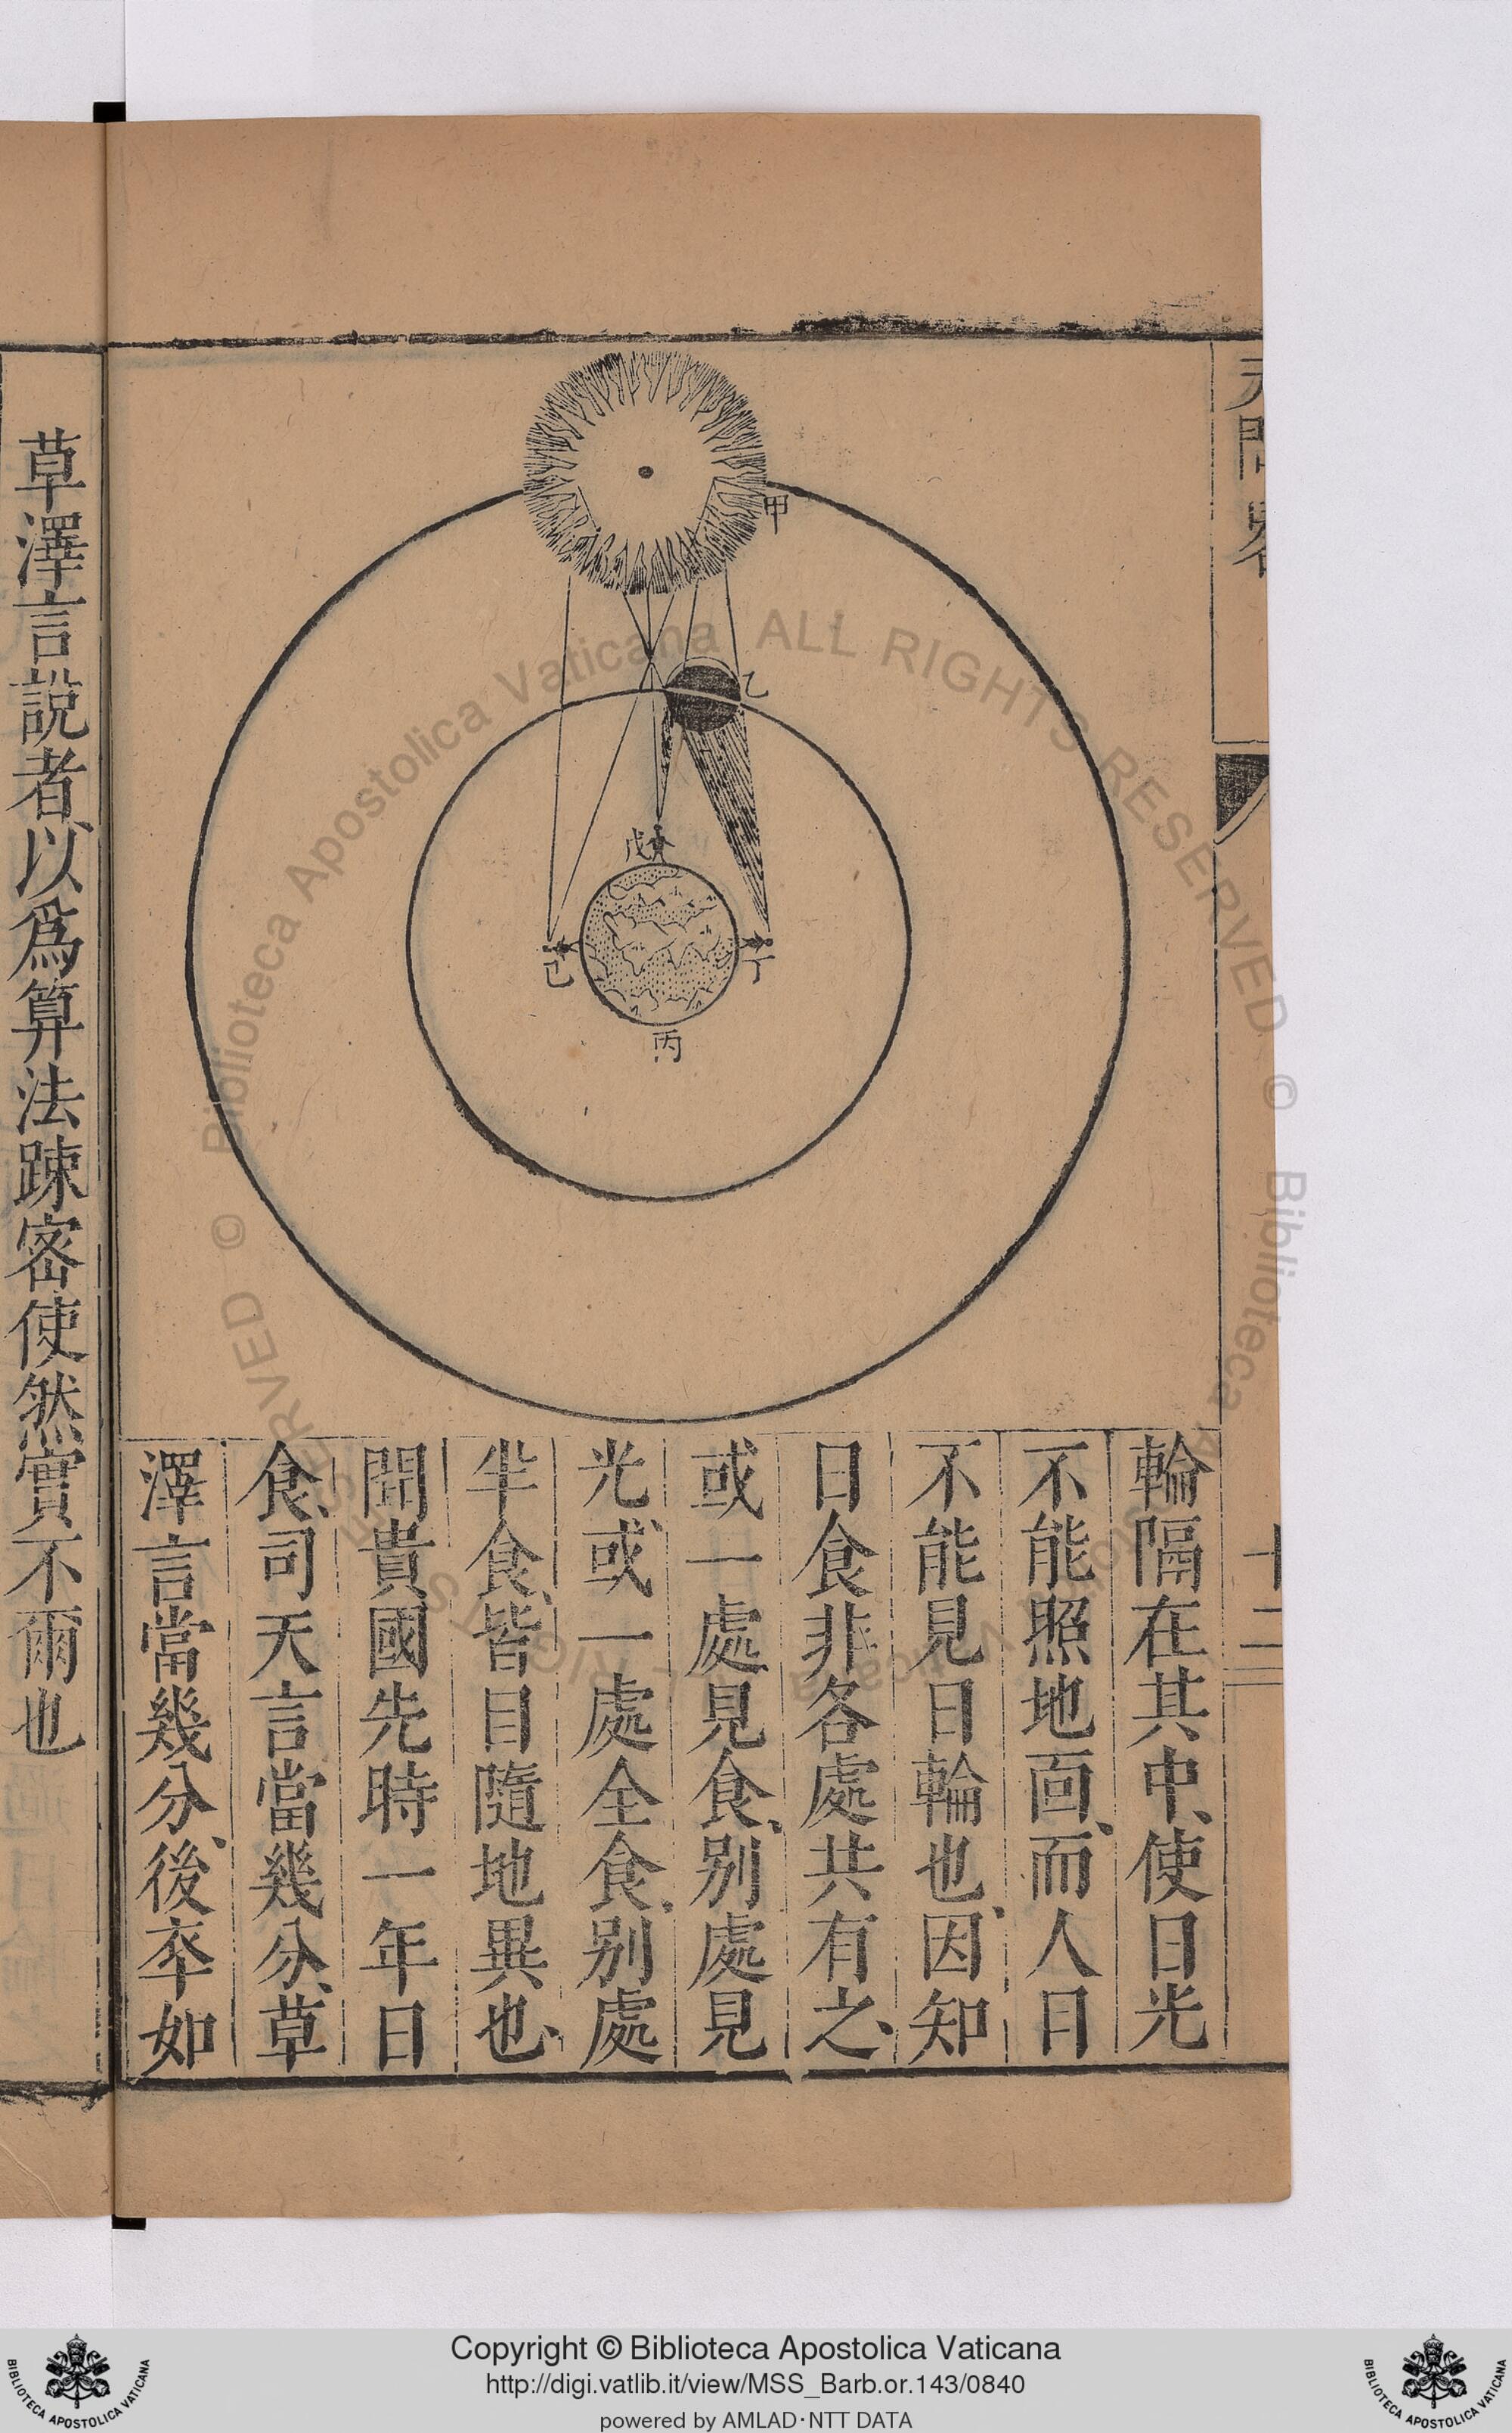 天問畧
十二
甲
乙
戊
己
丁
丙
輪隔在其中、使日光
不能照地面、而人日
不能見日輪也、因知
日食非各處共有之、
或一處見食、別處見
光、或一處全食、別處
半食、皆目隨地異也、
聞貴國先時一年日
食、司天言當幾分、草
澤言當幾分、後卒如
草澤言說者、以爲算法踈密使然實不爾也
© Biblioteca Apostolica Vaticana ALL RIGHTS RESERVED © Biblioteca Apostolica Vaticana ALL RIGHTS RESERVED
Copyright © Biblioteca Apostolica Vaticana
http://digi.vatlib.it/view/MSS_Barb.or.143/0840
powered by AMLAD·NTT DATA
BIBLIOTECA APOSTOLICA VATICANA
BIBLIOTECA APOSTOLICA VATICANA